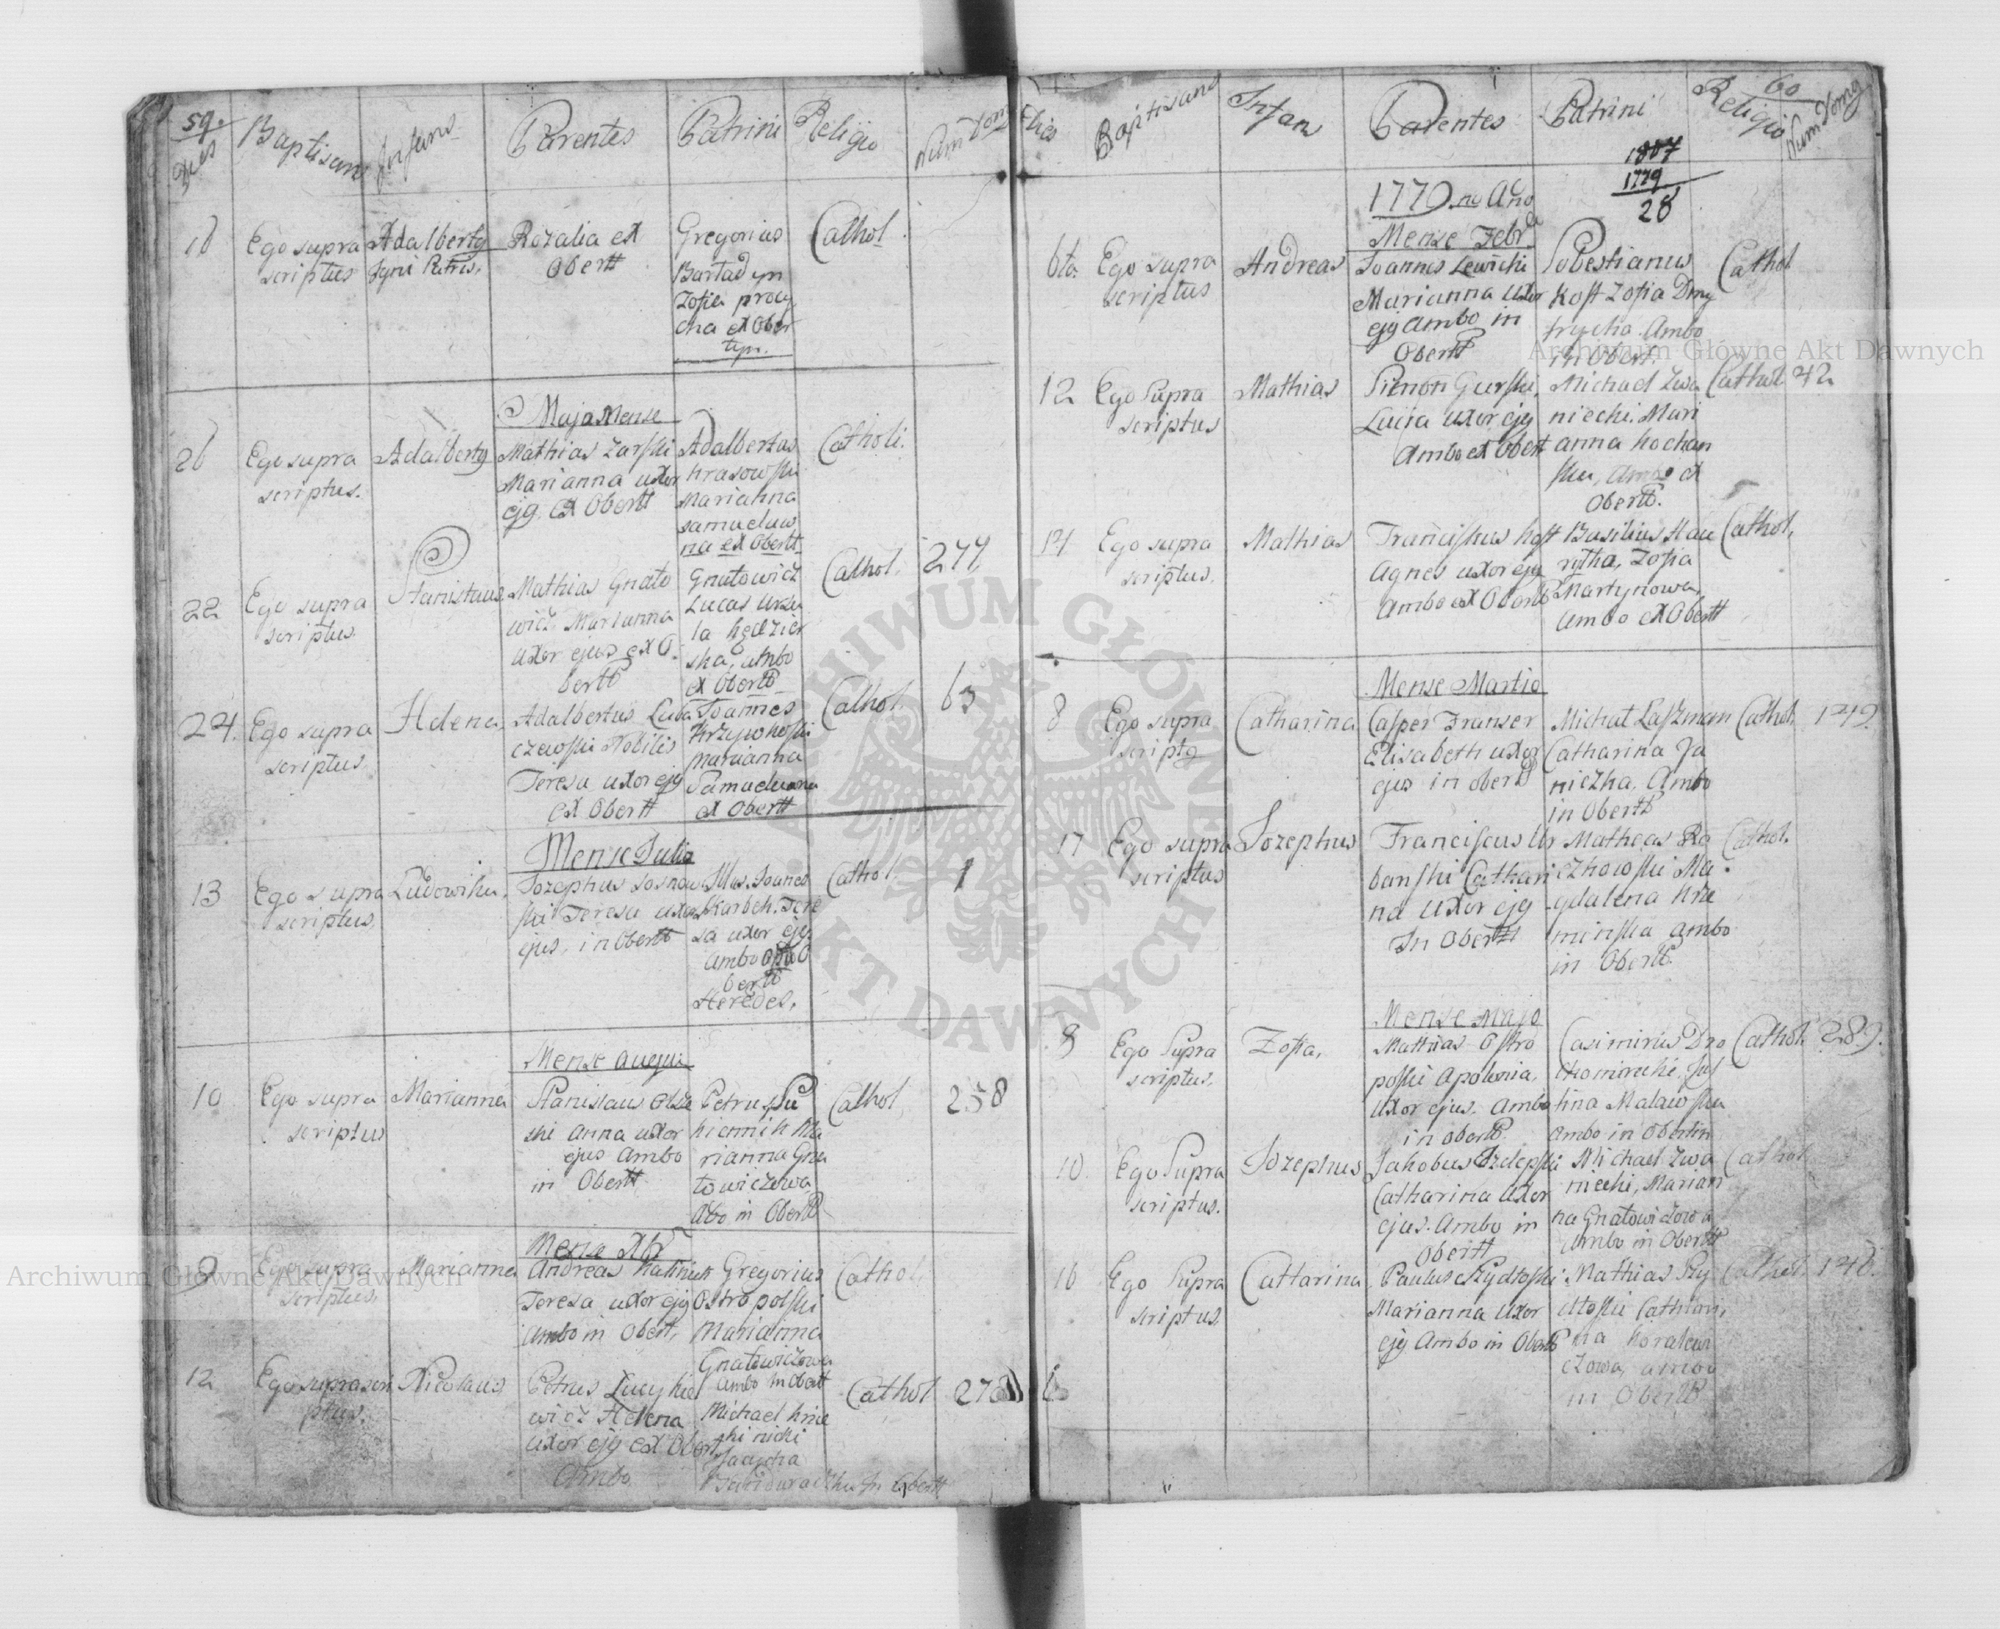 59.
Dies
Baptisans
Infans
Parentes
Patrini
Religio
Num Dom
18
Ego supra
scriptus
Adalbertg
Rozalia ex
Obertt
Gregorius
Zofia
ex Ober
tyn.
Cathol
Majo Mense
26
Ego supra
scriptus.
Adalbertg
Mathias Zarski
Marianna uxor
ejg. ex Obertt
Adalbertus
Krasowski
Marianna
samuelow
na ex Obertt
Catholi.
22
Ego supra
scriptus
Stanislaus
Mathias Gnato
wicz Marianna
uxor ejus ex O
bertt
Gnatowicz
Lucas
ska, ambo
ex Obertt
Cathol.
277
24.
Ego supra
scriptus
Helena
Adalbertus Luba
czewski Nobilis
Teresa uxor ejg
ex Obertt
Joannes
Krzywkoski
Marianna
Samuelowna
ex Obertt
Cathol.
63
Mense Julio
13
Ego supra
scriptus
Ludowika.
Jozephus sosnow
ski Teresa uxor
ejus. in Obertt
Joanes
Skarbek. Tere
sa uxor ejg
ambo
bertt
Heredes.
Cathol.
1
Mense
10
Ego supra
scriptus
Marianna
Stanislaus Olsze
ski Anna uxor
ejus Ambo
in Obertt
Petrus Su
kiennik Ma
rianna Gna
towiczowa
in Obertt
Cathol
258
Mense Xbr
9
Ego supra
scriptus.
Marianna
Andreas Kalinick
Teresa uxor ejg
Ambo in Obert.
Gregorius
Ostropolski
Marianna
Gnatowiczowa
ambo in Obert
Cathol.
12
Ego suprascri
ptus.
Nicolaus
Petrus Lucykie
wicz Helena
uxor ejg ex Obert
Ambo
Michael
Cathol
278
60
Dies
Baptisans
Infans
Parentes
Patrini
Religio
Num Domg
1807
1779
28
Mense Febr
6ta.
Ego supra
scriptus
Andreas
Joannes Lewicki
Marianna uxor
ejg Ambo in
Obertt
Kost Zofia Dmy
trycha. Ambo
in Obert.
Cathol
12
Ego Supra
scriptus
Mathias
Simon Gurski,
Lucija uxor ejg
Ambo ex Obert
Michael Zwa
niecki. Mari
anna Kochan
ska, Ambo ex
Obertt.
Cathol
42
14
Ego supra
scriptus.
Mathias
Franciskus Kost
Agnes uxor ejg
Ambo ex Obertt
Basilius Hau
rytka, Zofia
Martynowa,
Ambo ex Obertt
Cathol.
Mense Martio
8
Ego supra
scriptg
Catharina
Casper Franser
Elisabeth uxor
ejus in obertt
Michal Laszman
Catharina Ja
niczka, Ambo
in Obertt
Cathol.
149.
17
Ego supra
scriptus
Jozephus
Franciscus Ur
banski Cathari
na uxor ejg
In Obertt
Matheas Ra
czkowski Ma
gdalena Krze
minska ambo
in Obertt.
Cathol.
Mense Majo
9
Ego Supra
scriptus.
Zofia.
Mathias Ostro
polski Apolonia.
uxor ejus. Ambo
in obertt.
Casimirus Dro
homirecki, Jus
tina Malawska
Ambo in Obertin
Cathol.
289.
10
Ego Supra
scriptus.
Jozephus
Jakobus Szelepski
Catharina uxor
ejus. Ambo in
Obertt
Michael Zwa
niecki, Marian
na Gnatowiczowa
Ambo in Obertt
Cathol
16
Ego Supra
scriptus.
Cattarina
Paulus Szydloski
Marianna uxor
ejg Ambo in Obertt
Mathias Szy
dloski Cathari,
na Koralewi
czowa, ambo
in Obertt
Cathol.
148.
Archiwum Główne Akt Dawnych
Archiwum Główne Akt Dawnych
ARCHIWUM GŁÓWNE AKT DAWNYCH